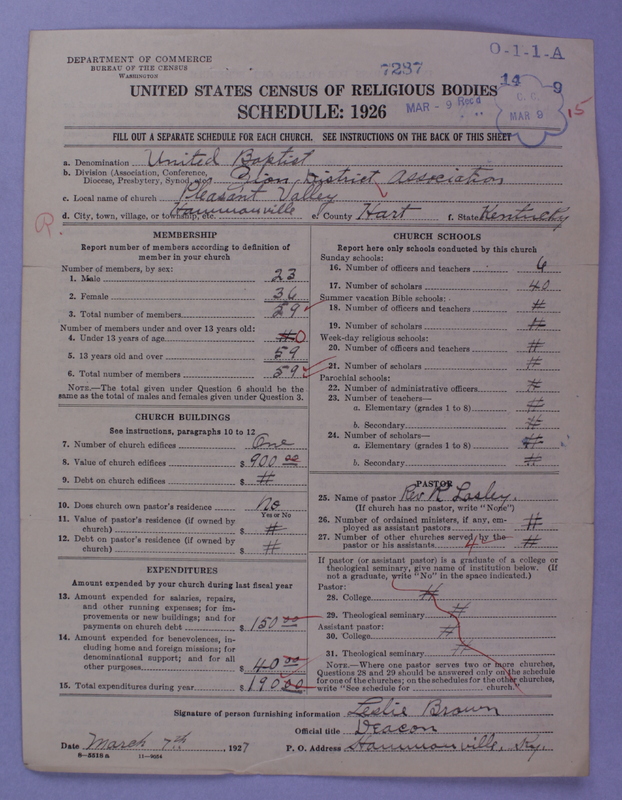 DEPARTMENT OF COMMERCE
BUREAU OF THE CENSUS
WASHINGTON
7287
O-1-1-A
14 9
MAR - 9 Rec'd
C. C.
MAR 9
15
UNITED STATES CENSUS OF RELIGIOUS BODIES
SCHEDULE: 1926
FILL OUT A SEPARATE SCHEDULE FOR EACH CHURCH. SEE INSTRUCTIONS ON THE BACK OF THIS SHEET
a. Denomination United Baptist
b. Division (Association, Conference, Diocese, Presbytery, Synod, etc.) Zion District Association
c. Local name of church Pleasant Valley
d. City, town, village, or township, etc. Hammonville e. County Hart f. State Kentucky
R.
MEMBERSHIP
Report number of members according to definition of
member in your church
Number of members, by sex:
1. Male 23
2. Female 36
3. Total number of members 59
Number of members under and over 13 years old:
4. Under 13 years of age # 0
5. 13 years old and over 59
6. Total number of members 59
NOTE.—The total given under Question 6 should be the
same as the total of males and females given under Question 3.
CHURCH BUILDINGS
See instructions, paragraphs 10 to 12
7. Number of church edifices One
8. Value of church edifices $ 900 00
9. Debt on church edifices $ #
10. Does church own pastor's residence No
Yes or No
11. Value of pastor's residence (if owned by
church) $ #
12. Debt on pastor's residence (if owned by
church) $ #
EXPENDITURES
Amount expended by your church during last fiscal year
13. Amount expended for salaries, repairs,
and other running expenses; for im-
provements or new buildings; and for
payments on church debt $ 150 00
14. Amount expended for benevolences, in-
cluding home and foreign missions; for
denominational support; and for all
other purposes $ 40 00
15. Total expenditures during year $ 190 00
CHURCH SCHOOLS
Report here only schools conducted by this church
Sunday schools:
16. Number of officers and teachers 6
17. Number of scholars 40
Summer vacation Bible schools:
18. Number of officers and teachers #
19. Number of scholars #
Week-day religious schools:
20. Number of officers and teachers #
21. Number of scholars #
Parochial schools:
22. Number of administrative officers #
23. Number of teachers—
a. Elementary (grades 1 to 8) #
b. Secondary #
24. Number of scholars—
a. Elementary (grades 1 to 8) #
b. Secondary #
PASTOR
25. Name of pastor Rev R Lasley.
(If church has no pastor, write "None")
26. Number of ordained ministers, if any, em-
ployed as assistant pastors #
27. Number of other churches served by the
pastor or his assistants 4 #
If pastor (or assistant pastor) is a graduate of a college or
theological seminary, give name of institution below. (If
not a graduate, write "No" in the space indicated.)
Pastor:
28. College #
29. Theological seminary #
Assistant pastor:
30. College #
31. Theological seminary #
NOTE.—Where one pastor serves two or more churches,
Questions 28 and 29 should be answered only on the schedule
for one of the churches; on the schedules for the other churches,
write "See schedule for church."
Signature of person furnishing information Leslie Brown
Official title Deacon
Date March 7th, 1927 P. O. Address Hammonville, Ky.
8—5518 a 11—9054